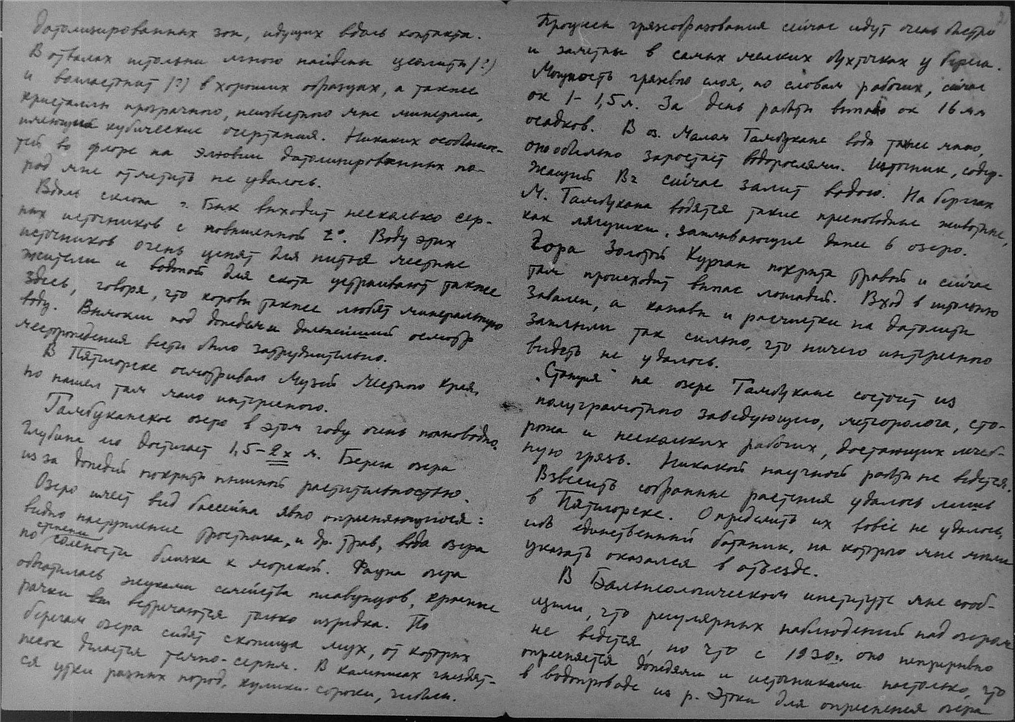 датолизированных зон, идущих вдоль контакта.
В отвалах штольни мною найдены цеолиты (?)
и волластонит (?) в хороших образцах, а также
кристаллы прозрачного, неизвестного мне минерала,
имеющие кубические очертания. Никаких особеннос-
тей во флоре на элювии датолизированных по-
род мне отметить не удалось.
Вдоль склона г. Бык выходит несколько сер-
ных источников с повышенной t°. Воду этих
источников очень ценят для питья местные
жители и водопой для скота устраивают также
здесь, говоря, что коровы также любят минеральную
воду. Вымокли под дождем и дальнейший осмотр
месторождения вести было затруднительно.
В Пятигорске осматривал Музей Местного Края,
но нашел там мало интересного.
Тамбуканское озеро в этом году очень полноводно.
Глубина его достигает 1,5–2х м. Берега озера
из за дождей покрыты пышной растительностью.
Озеро имеет вид бассейна явно опресняющегося:
видно наступление тростника, и др. трав, вода озера
по степени солености близка к морской. Фауна озера
обогатилась жуками семейства плавунцов, красные
рачки встречаются только изредка. По
берегам озера сидят скопища мух, от которых
песок делается темно-серым. В камышах гнездят-
ся утки разных пород, кулики-сороки, чибисы.
2
Процессы грязеобразования сейчас идут очень быстро
и заметны в самых мелких бухточках у берега.
Мощность грязевого слоя, по словам рабочих, сейчас
ок 1–1,5 м. За день работы выпало ок 16 мм
осадков. В оз. Малом Тамбукане воды также много,
оно обильно заростает водорослями. Источник, содер-
жащий Br сейчас залит водою. На берегах
М. Тамбукана водятся такие пресноводные животные,
как лягушки, заплывающие даже в озеро.
Гора Золотой Курган покрыта травой и сейчас
там происходит выпас лошадей. Вход в штольню
завален, а канавы и расчистки на датолиты
заплыли так сильно, что ничего интересного
видеть не удалось.
„Станция" на озере Тамбукане состоит из
полуграмотного заведующего, метеоролога, сто-
рожа и нескольких рабочих, достающих лечеб-
ную грязь. Никакой научной работы не ведется.
Взвесить собранные растения удалось лишь
в Пятигорске. Определить их вовсе не удалось,
ибо единственный ботаник, на которого мне могли
указать оказался в отъезде.
В Бальнеологическом институте мне сооб-
щили, что регулярных наблюдений над озером
не ведется, но что с 1930 г. оно непрерывно
опресняется дождями и источниками настолько, что
в водопроводе из р. Этоки для опреснения озера